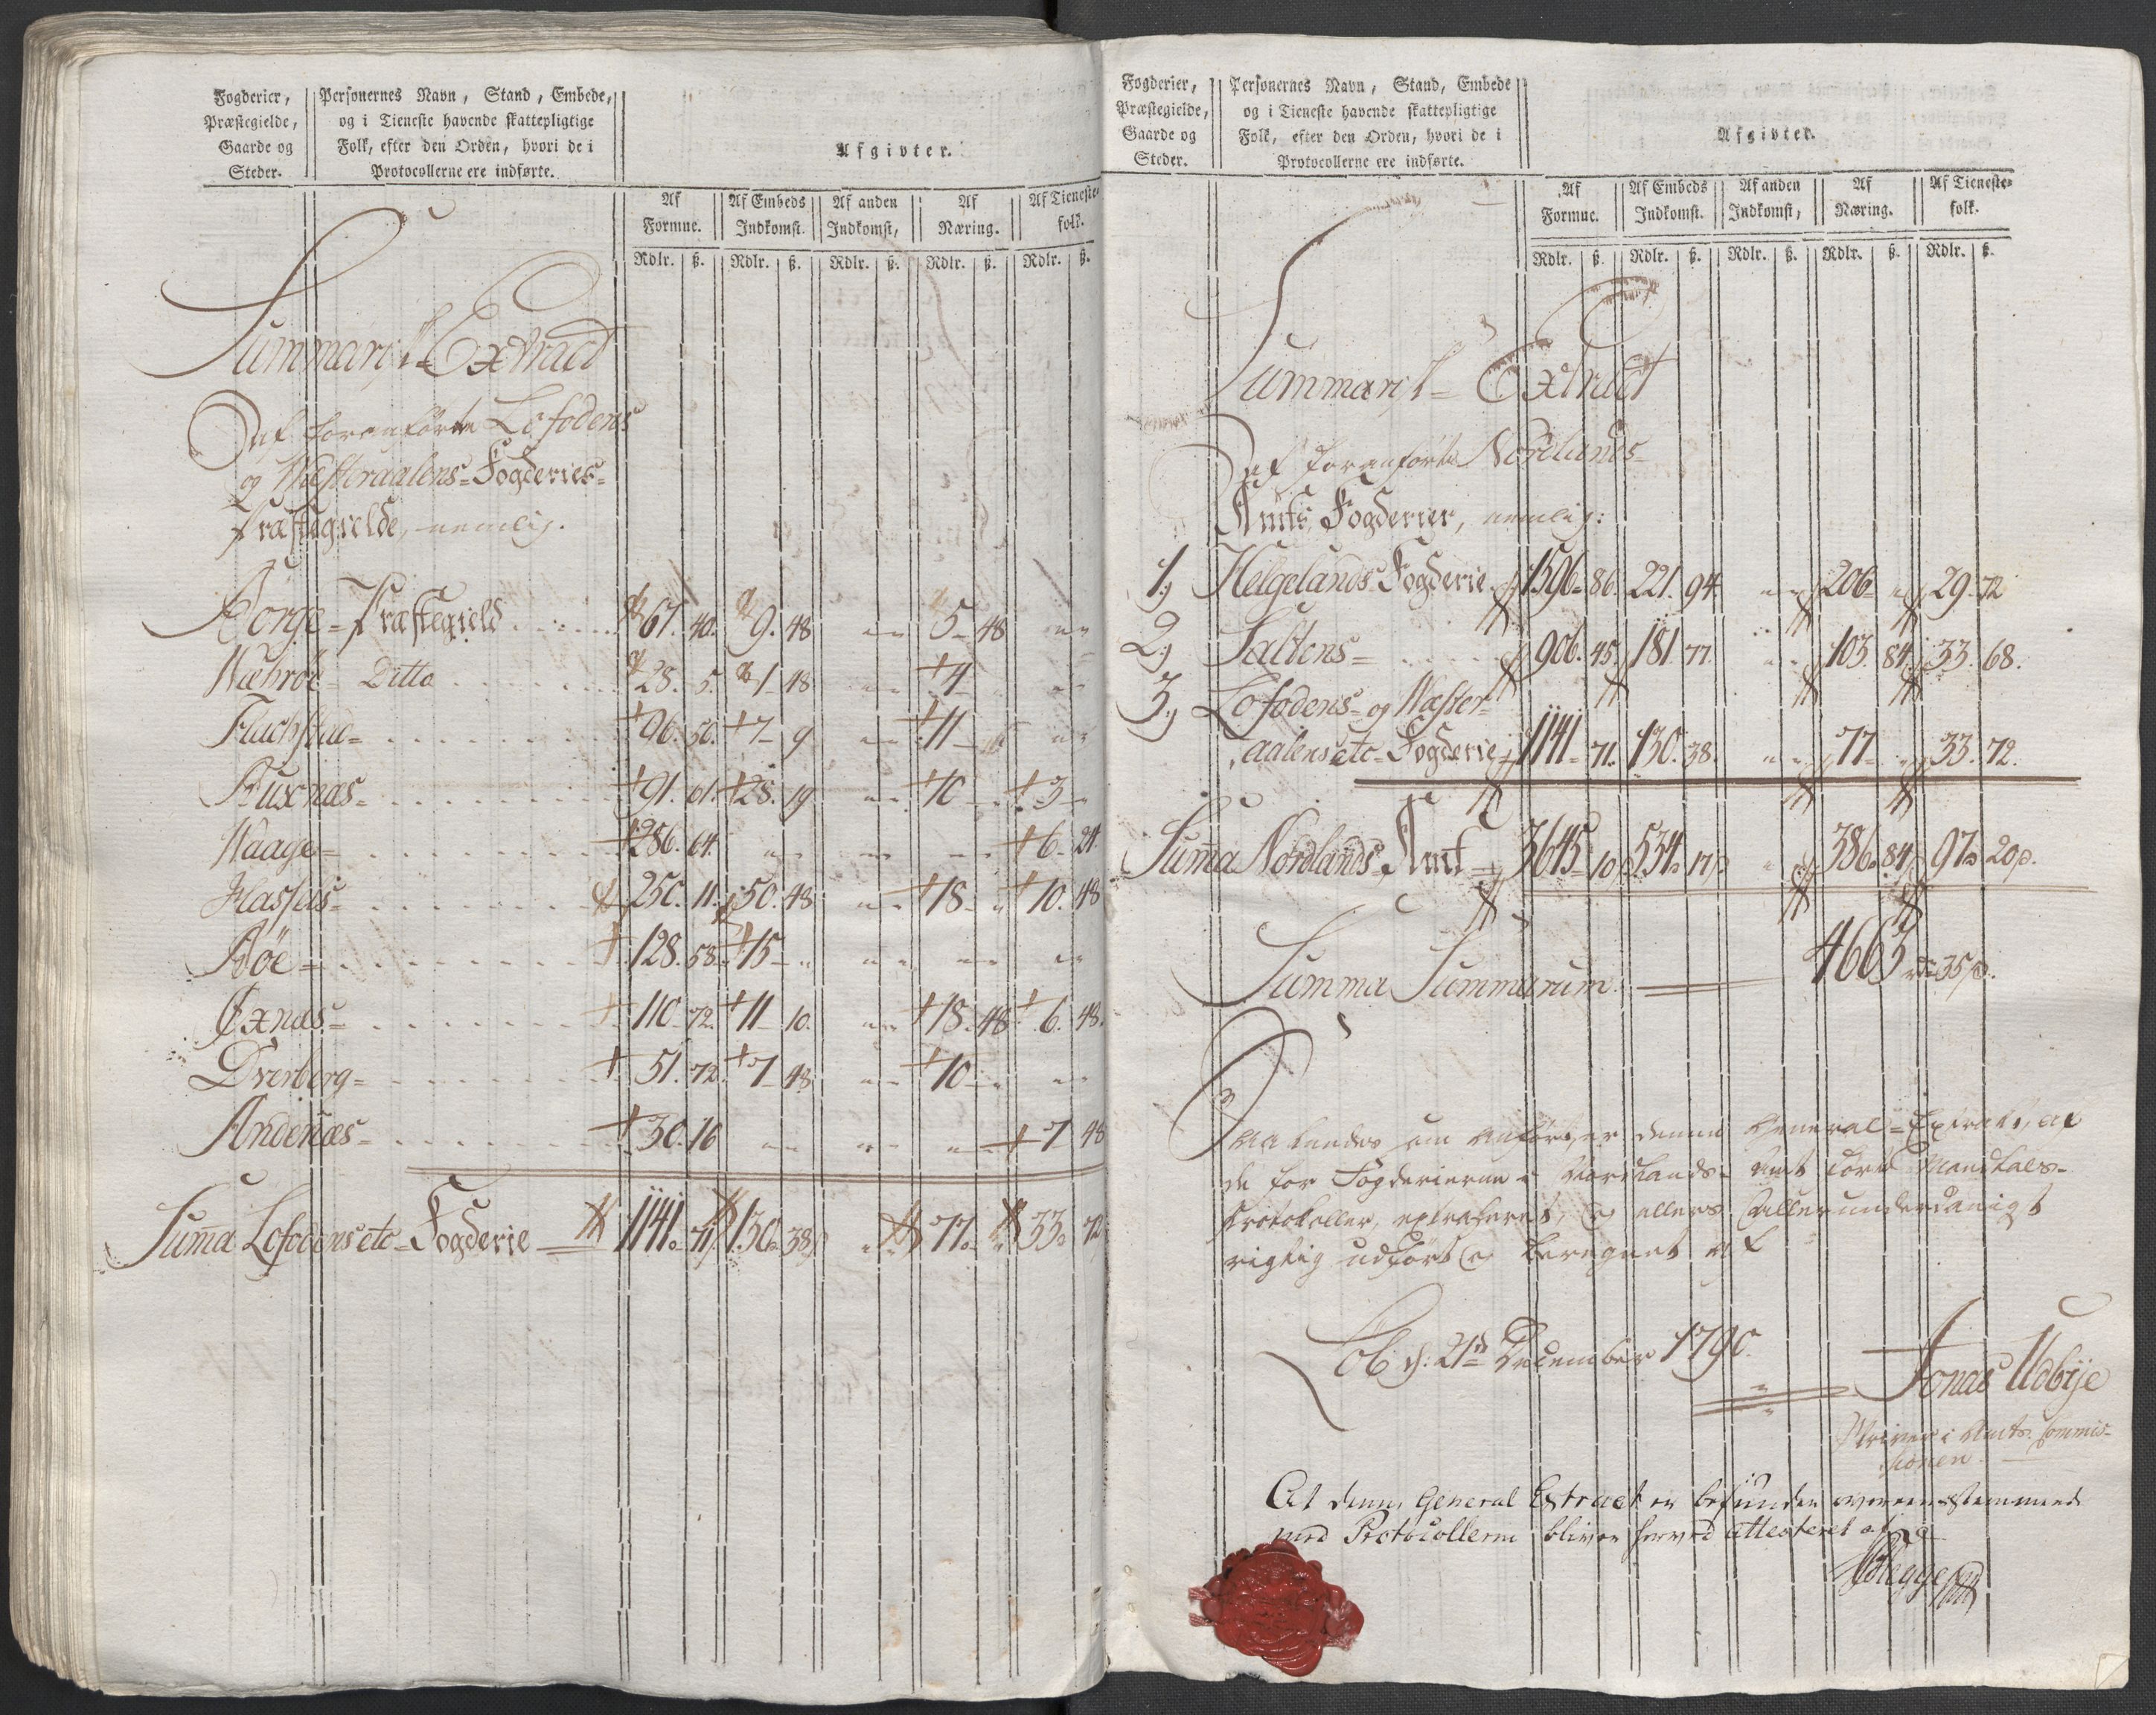 Fogderier, Præstegielde, Gaarde og Steder.
Personernes Navn, Stand, Embede,
og i Tieneste havende skattepligtige
Folk, efter den Orden, hvori de i
Protocollerne ere indførte.
Afgivter.
Af Formue. Af Embeds Indkomst. Af anden Indkomst, Af Næring. Af Tieneste- folk.
Rdlr. ß. Rdlr. ß. Rdlr. ß. Rdlr. ß. Rdlr. ß.
Summarisk Extract
Af foranførte Lofodens
og Westeraalens Fogderies
Præstegielde, nemlig.
Borge Præstegield 67. 40. 9. 48 " " 5 48 " "
Wæhrøe Ditto 28. 5. 1 48 " " 4 " "
Flachstad 96. 50. 7 9 " " 11 " "
Buxnæs 91. 61. 28. 19 " " 10 3
Waage 286. 64. " " " " " " 6. 24.
Hassels 250. 11. 50. 48 " " 18 " 10. 48
Bøe 128. 58. 15 " " " " " " "
Øxnæs 110 72. 11 10. " " 18. 48 6. 48.
Dverberg 51. 72 7 48 " " 10 " " "
Andenæs 30. 16 " " " " " " 7 48
Suma Lofodens etc Fogderie 1141. 71 130. 38 " " 77. " 33. 72
Fogderier, Præstegielde, Gaarde og Steder.
Personernes Navn, Stand, Embede
og i Tieneste havende skattepligtige
Folk, efter den Orden, hvori de i
Protocollerne ere indførte.
Afgivter.
Af Formue. Af Embeds Indkomst. Af anden Indkomst, Af Næring. Af Tieneste- folk.
Rdlr. ß. Rdlr. ß. Rdlr. ß. Rdlr. ß. Rdlr. ß.
Summarisk Extract
Af foranførte Nordlands
Amts Fogderier, nemlig:
1.) Helgelands Fogderie 1596. 86. 221. 94. " " 206 " 29. 72
2.) Saltens 906. 45. 181. 77. " " 103. 84. 33. 68.
3.) Lofodens og Wester-
aalens etc Fogderie 1141 71. 130. 38. " " 77 " 33. 72.
Suma Nordlands Amt 3645 10 534. 17 " " 386. 84 97. 20ß.
Summa Summarum 4663 rd 35ß.
Saaledes som anført, er denne General-Extract, af
de for Fogderierne i Nordlands Amt førte Mandtals-
Protokoller, extraheret, og ellers allerunderdanigst
rigtig udført og beregnet af
d: 21de December 1790.
Jonas Udbye
Skriver i Amts Commis-
sionen.
At denne General Extract er befunden overeenstemmende
med Protocollerne bliver herved attesteret af